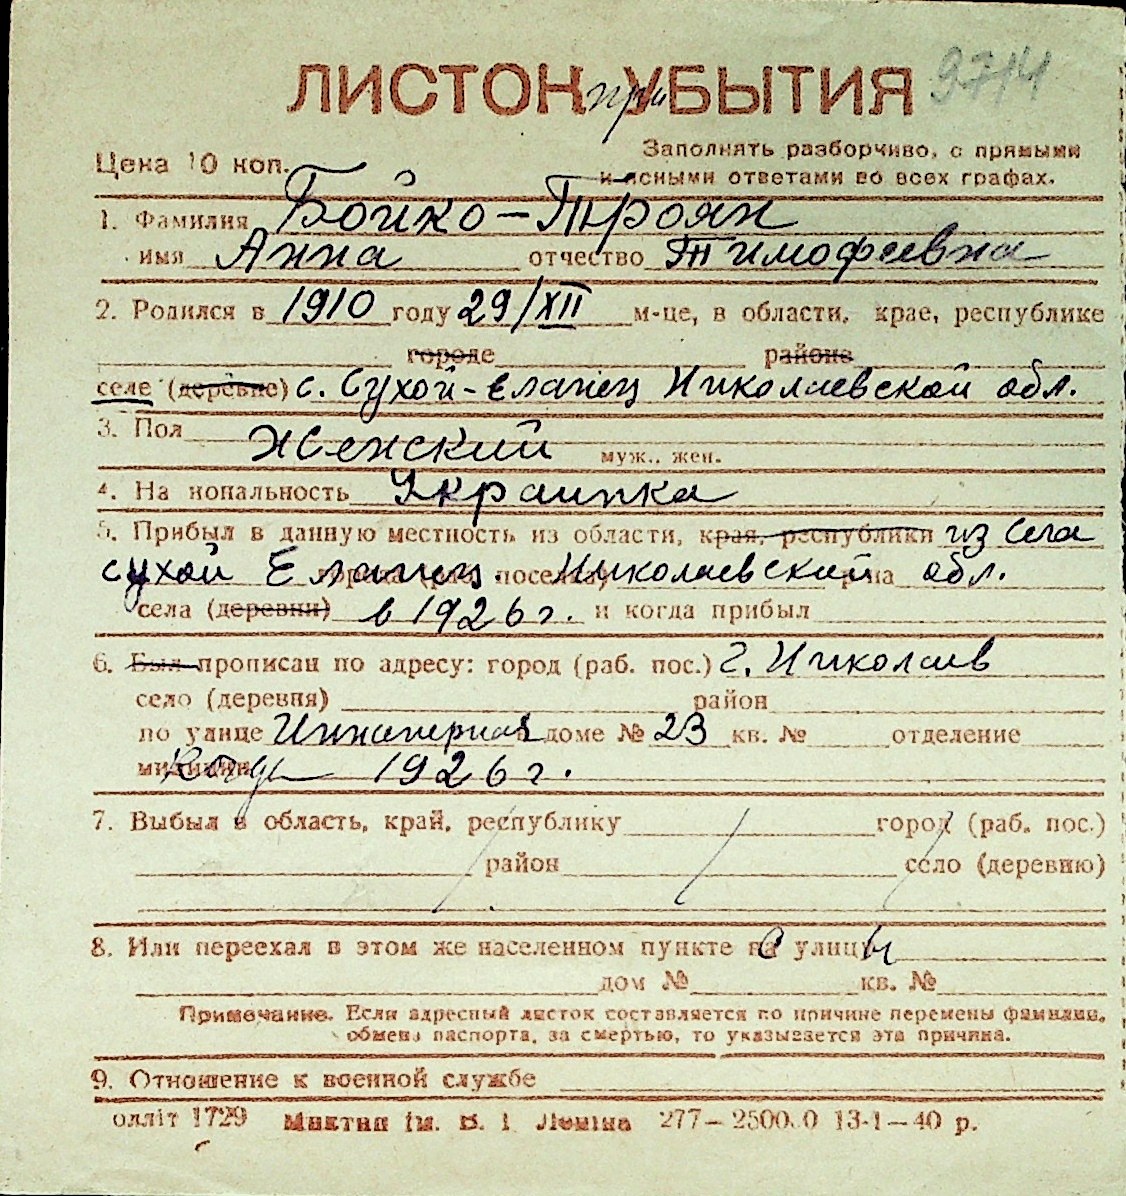 ЛИСТОК при УБЫТИЯ 9714
Цена 10 коп.
Заполнять разборчиво, с прямыми
и ясными ответами во всех графах.
1. Фамилия Бойко-Троян
имя Анна отчество Тимофеевна
2. Родился в 1910 году 29/XII м-це, в области, крае, республике
городе районе
селе (деревне) с. Сухой-Еланец Николаевской обл.
3. Пол Женский муж., жен.
4. Национальность Украинка
5. Прибыл в данную местность из области, края, республики из села
сухой Еланец. Николаевский обл.
села (деревни) в 1926 г. и когда прибыл
6. Был прописан по адресу: город (раб. пос.) г. Николаев
село (деревня) район
по улице доме № 23 кв. № отделение
милиции 1926 г.
7. Выбыл в область, край, республику город (раб. пос.)
район село (деревню)
8. Или переехал в этом же населенном пункте с улицы
дом № кв. №
Примечание. Если адресный листок составляется по причине перемены фамилии,
обмена паспорта, за смертью, то указывается эта причина.
9. Отношение к военной службе
олліт 1729 ім. В. І. Леніна 277—2500.0 13-1—40 р.